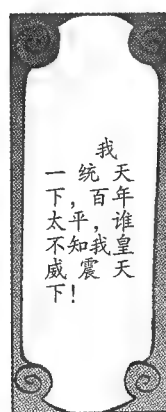 我
一统天
下，百年
太平，谁
不知我皇
威震天
下！